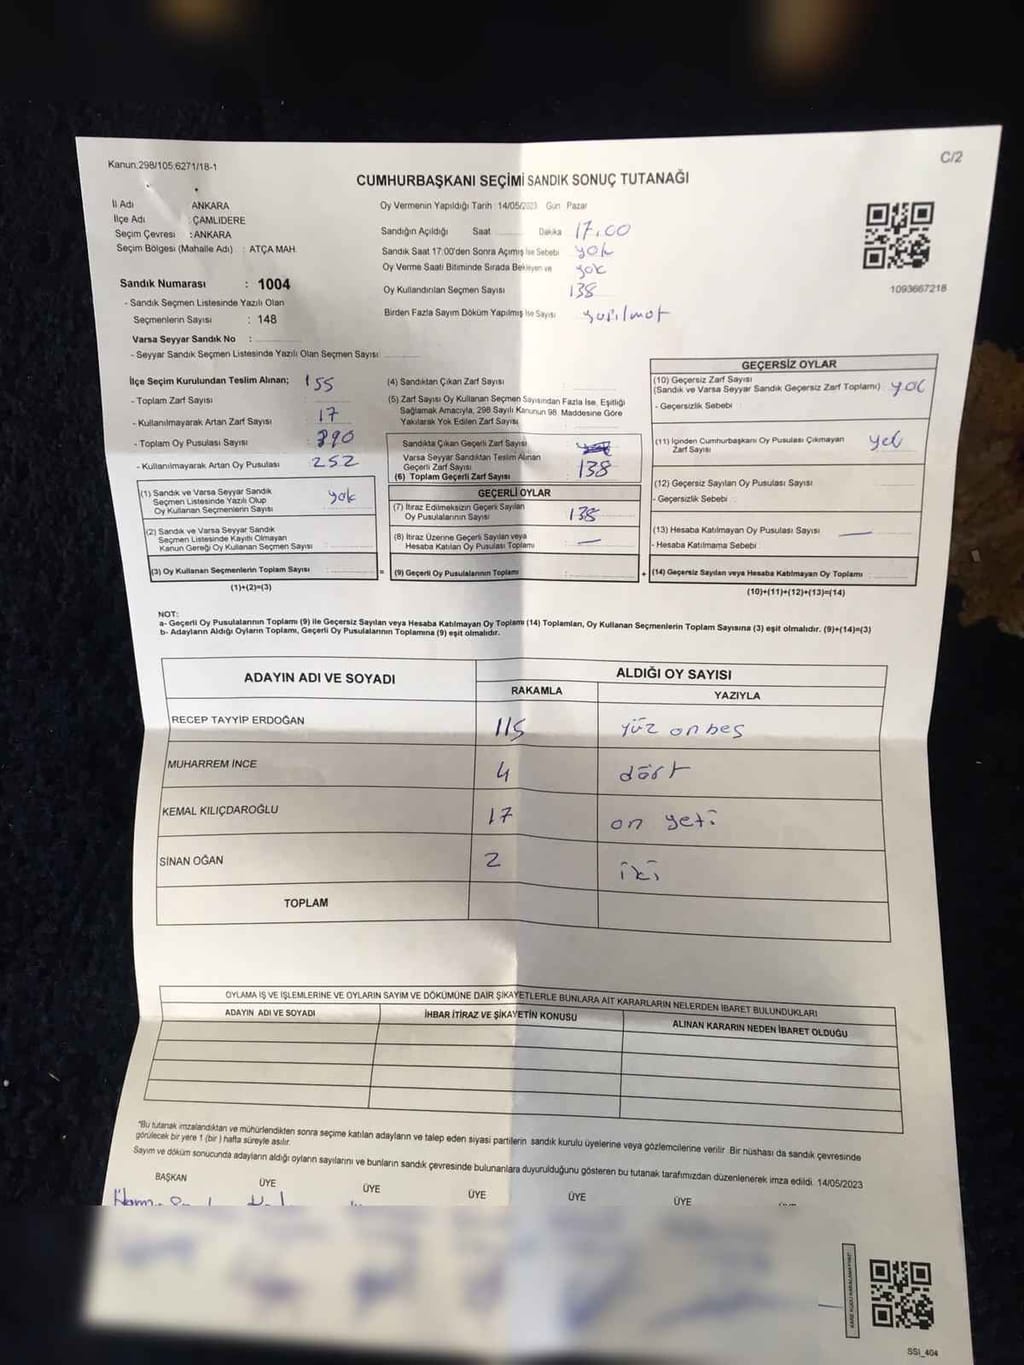 Kanun:298/105.6271/18-1
C/2
CUMHURBAŞKANI SEÇİMİ SANDIK SONUÇ TUTANAĞI
İl Adı ANKARA
İlçe Adı : ÇAMLIDERE
Seçim Çevresi : ANKARA
Seçim Bölgesi (Mahalle Adı) : ATÇA MAH.
Sandık Numarası : 1004
- Sandık Seçmen Listesinde Yazılı Olan
Seçmenlerin Sayısı : 148
Varsa Seyyar Sandık No :
- Seyyar Sandık Seçmen Listesinde Yazılı Olan Seçmen Sayısı
Oy Vermenin Yapıldığı Tarih : 14/05/2023 Gün Pazar
Sandığın Açıldığı Saat Dakika 17.00
Sandık Saat 17:00'den Sonra Açımış İse Sebebi yok
Oy Verme Saati Bitiminde Sırada Bekleyen ve yok
Oy Kullandırılan Seçmen Sayısı 138
Birden Fazla Sayım Döküm Yapılmış İse Sayısı
1093667218
İlçe Seçim Kurulundan Teslim Alınan; 155
- Toplam Zarf Sayısı
- Kullanılmayarak Artan Zarf Sayısı 17
- Toplam Oy Pusulası Sayısı 390
- Kullanılmayarak Artan Oy Pusulası 252
(1) Sandık ve Varsa Seyyar Sandık
Seçmen Listesinde Yazılı Olup
Oy Kullanan Seçmenlerin Sayısı yok
(2) Sandık ve Varsa Seyyar Sandık
Seçmen Listesinde Kayıtlı Olmayan
Kanun Gereği Oy Kullanan Seçmen Sayısı
(3) Oy Kullanan Seçmenlerin Toplam Sayısı
(1)+(2)=(3)
(4) Sandıktan Çıkan Zarf Sayısı
(5) Zarf Sayısı Oy Kullanan Seçmen Sayısından Fazla İse, Eşitliği
Sağlamak Amacıyla, 298 Sayılı Kanunun 98. Maddesine Göre
Yakılarak Yok Edilen Zarf Sayısı
Sandıkta Çıkan Geçerli Zarf Sayısı
Varsa Seyyar Sandıktan Teslim Alınan
Geçerli Zarf Sayısı
(6) Toplam Geçerli Zarf Sayısı 138
GEÇERLİ OYLAR
(7) İtiraz Edilmeksizin Geçerli Sayılan
Oy Pusulalarının Sayısı 138
(8) İtiraz Üzerine Geçerli Sayılan veya
Hesaba Katılan Oy Pusulası Toplamı —
= (9) Geçerli Oy Pusulalarının Toplamı
GEÇERSİZ OYLAR
(10) Geçersiz Zarf Sayısı
(Sandık ve Varsa Seyyar Sandık Geçersiz Zarf Toplamı) yok
- Geçersizlik Sebebi
(11) İçinden Cumhurbaşkanı Oy Pusulası Çıkmayan
Zarf Sayısı
(12) Geçersiz Sayılan Oy Pusulası Sayısı
- Geçersizlik Sebebi
(13) Hesaba Katılmayan Oy Pusulası Sayısı —
- Hesaba Katılmama Sebebi
+ (14) Geçersiz Sayılan veya Hesaba Katılmayan Oy Toplamı
(10)+(11)+(12)+(13)=(14)
NOT:
a- Geçerli Oy Pusulalarının Toplamı (9) ile Geçersiz Sayılan veya Hesaba Katılmayan Oy Toplamı (14) Toplamları, Oy Kullanan Seçmenlerin Toplam Sayısına (3) eşit olmalıdır. (9)+(14)=(3)
b- Adayların Aldığı Oyların Toplamı, Geçerli Oy Pusulalarının Toplamına (9) eşit olmalıdır.
ADAYIN ADI VE SOYADI
ALDIĞI OY SAYISI
RAKAMLA YAZIYLA
RECEP TAYYİP ERDOĞAN 115 yüz onbeş
MUHARREM İNCE 4 dört
KEMAL KILIÇDAROĞLU 17 on yeti
SİNAN OĞAN 2 iki
TOPLAM
OYLAMA İŞ VE İŞLEMLERİNE VE OYLARIN SAYIM VE DÖKÜMÜNE DAİR ŞİKAYETLERLE BUNLARA AİT KARARLARIN NELERDEN İBARET BULUNDUKLARI
ADAYIN ADI VE SOYADI İHBAR İTİRAZ VE ŞİKAYETİN KONUSU ALINAN KARARIN NEDEN İBARET OLDUĞU
"Bu tutanak imzalandıktan ve mühürlendikten sonra seçime katılan adayların ve talep eden siyasi partilerin sandık kurulu üyelerine veya gözlemcilerine verilir. Bir nüshası da sandık çevresinde
görülecek bir yere 1 (bir) hafta süreyle asılır.
Sayım ve döküm sonucunda adayların aldığı oyların sayılarını ve bunların sandık çevresinde bulunanlara duyurulduğunu gösteren bu tutanak tarafımızdan düzenlenerek imza edildi. 14/05/2023
BAŞKAN ÜYE ÜYE ÜYE ÜYE ÜYE
SSİ_404